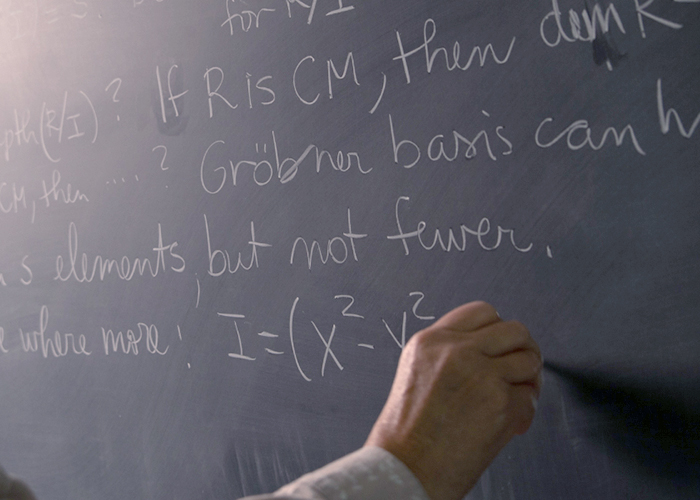 for R/I
pth(R/I)? If R is CM, then dim R
CM, then ....? Gröbner basis can h
s elements, but not fewer.
where more! I=(x²-y²